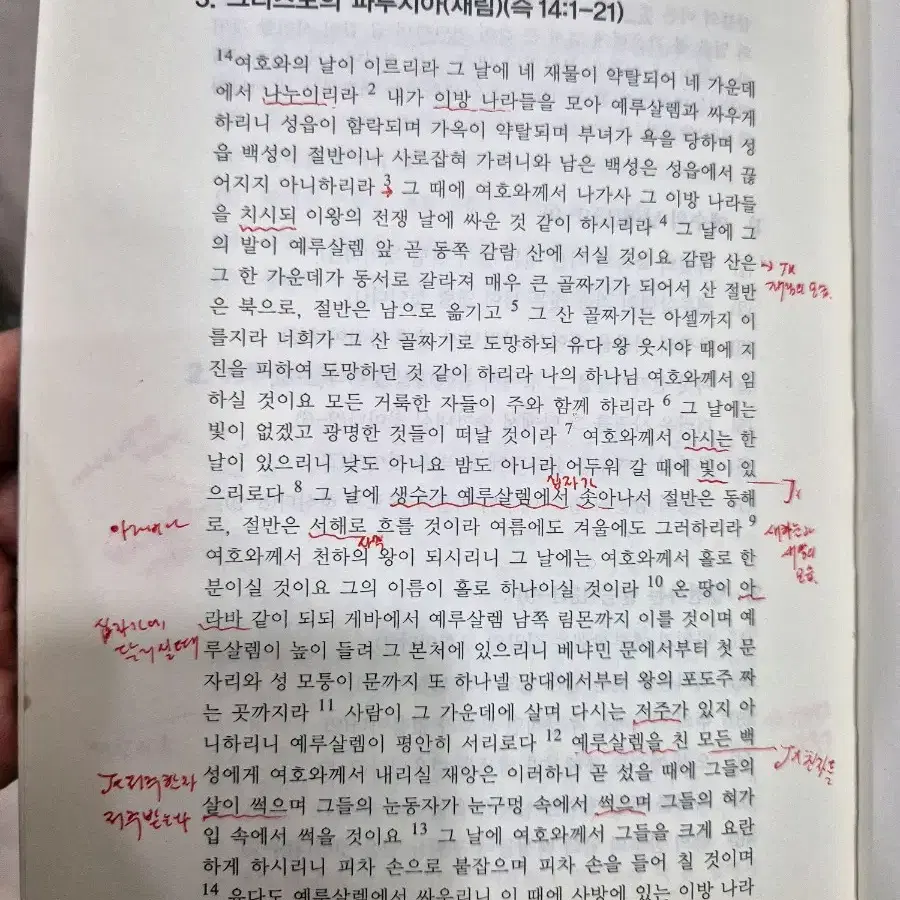 5. 그리스도의 파루시아(재림)(슥 14:1-21)
14여호와의 날이 이르리라 그 날에 네 재물이 약탈되어 네 가운데
에서 나누이리라 2 내가 이방 나라들을 모아 예루살렘과 싸우게
하리니 성읍이 함락되며 가옥이 약탈되며 부녀가 욕을 당하며 성
읍 백성이 절반이나 사로잡혀 가려니와 남은 백성은 성읍에서 끊
어지지 아니하리라 3 그 때에 여호와께서 나가사 그 이방 나라들
을 치시되 이왕의 전쟁 날에 싸운 것 같이 하시리라 4 그 날에 그
의 발이 예루살렘 앞 곧 동쪽 감람 산에 서실 것이요 감람 산은
그 한 가운데가 동서로 갈라져 매우 큰 골짜기가 되어서 산 절반
은 북으로, 절반은 남으로 옮기고 5 그 산 골짜기는 아셀까지 이
를지라 너희가 그 산 골짜기로 도망하되 유다 왕 웃시야 때에 지
진을 피하여 도망하던 것 같이 하리라 나의 하나님 여호와께서 임
하실 것이요 모든 거룩한 자들이 주와 함께 하리라 6 그 날에는
빛이 없겠고 광명한 것들이 떠날 것이라 7 여호와께서 아시는 한
날이 있으리니 낮도 아니요 밤도 아니라 어두워 갈 때에 빛이 있
십자가
으리로다 8 그 날에 생수가 예루살렘에서 솟아나서 절반은 동해
로, 절반은 서해로 흐를 것이라 여름에도 겨울에도 그러하리라 9
여호와께서 천하의 왕이 되시리니 그 날에는 여호와께서 홀로 한
분이실 것이요 그의 이름이 홀로 하나이실 것이라 10 온 땅이 아
라바 같이 되되 게바에서 예루살렘 남쪽 림몬까지 이를 것이며 예
십자가에
달리실때
루살렘이 높이 들려 그 본처에 있으리니 베냐민 문에서부터 첫 문
자리와 성 모퉁이 문까지 또 하나넬 망대에서부터 왕의 포도주 짜
는 곳까지라 11 사람이 그 가운데에 살며 다시는 저주가 있지 아
니하리니 예루살렘이 평안히 서리로다 12 예루살렘을 친 모든 백
성에게 여호와께서 내리실 재앙은 이러하니 곧 섰을 때에 그들의
저주받는다
살이 썩으며 그들의 눈동자가 눈구멍 속에서 썩으며 그들의 혀가
입 속에서 썩을 것이요 13 그 날에 여호와께서 그들을 크게 요란
하게 하시리니 피차 손으로 붙잡으며 피차 손을 들어 칠 것이며
14 유다도 예루살렘에서 싸우리니 이 때에 사방에 있는 이방 나라